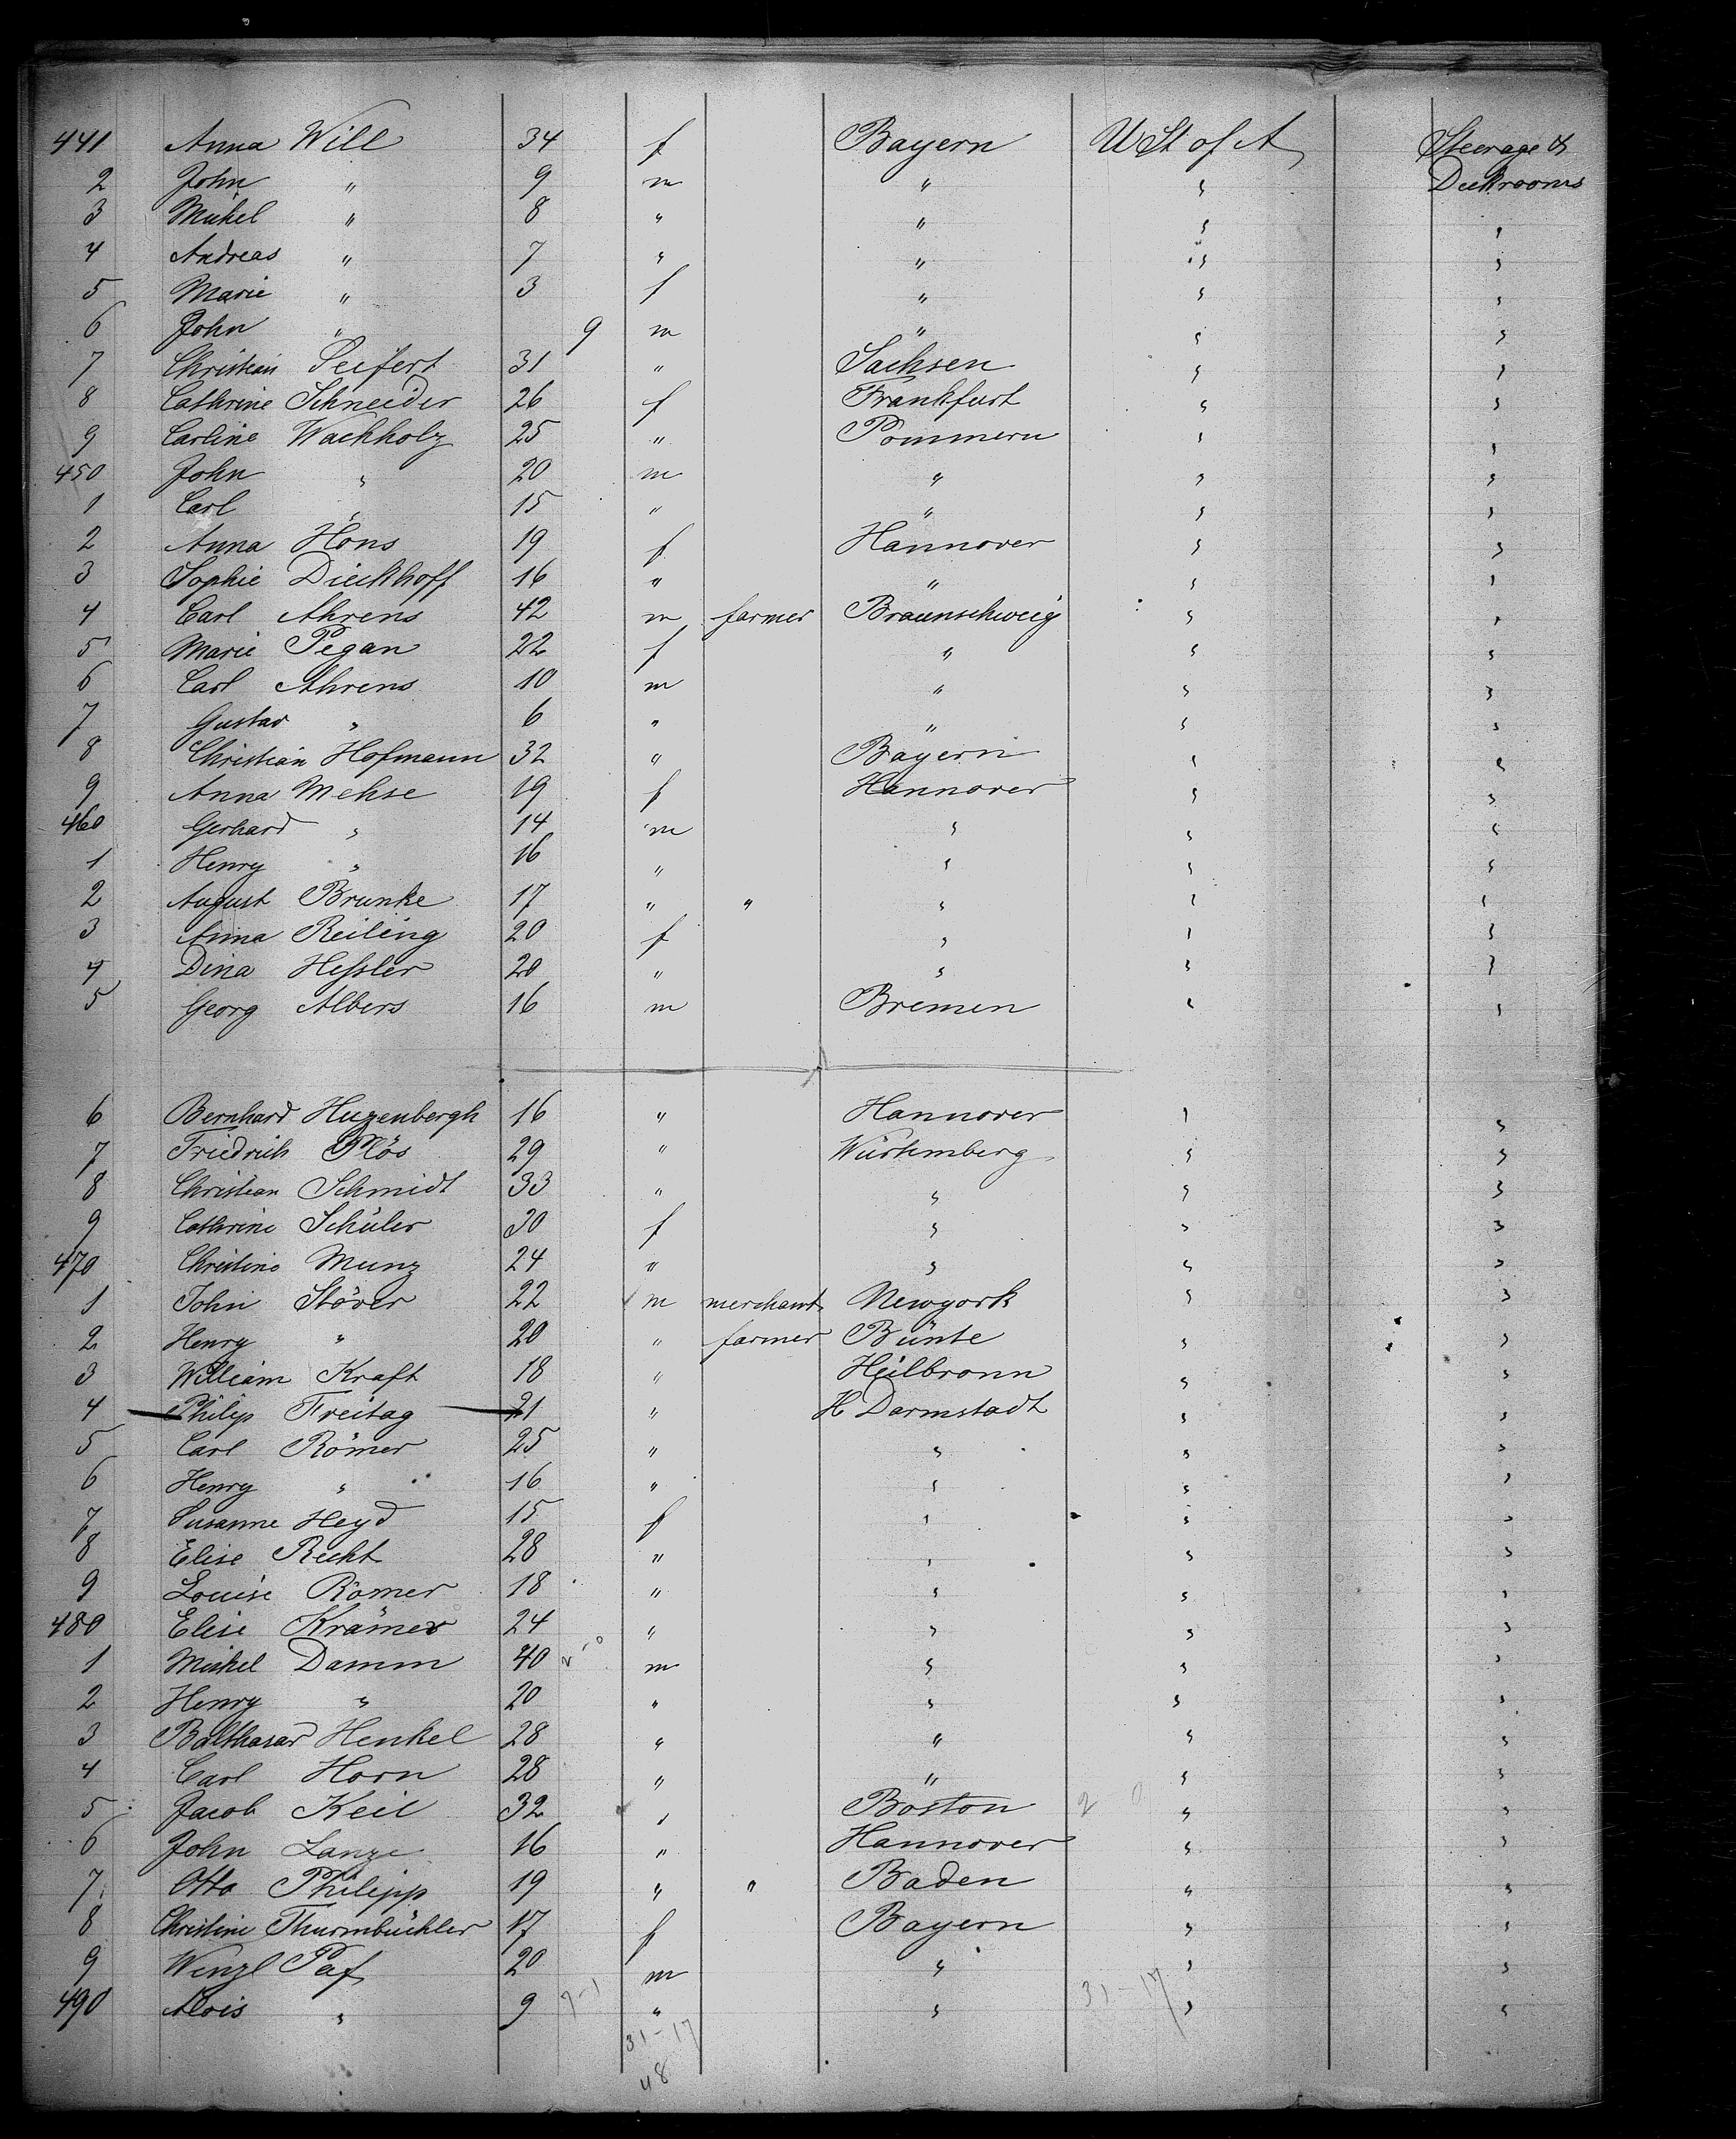 441 Anna Will 34 f Bayern U St of A Steerage &
2 John " 9 m " " Deckrooms
3 Michel " 8 " " " "
4 Andreas " 7 " " " "
5 Marie " 3 f " " "
6 John " 9 m " " "
7 Christian Seifert 31 " Sachsen " "
8 Cathrine Schneider 26 f Frankfurt " "
9 Carline Wachholz 25 " Pommern " "
450 John " 20 m " " "
1 Carl " 15 " " " "
2 Anna Hons 19 f Hannover " "
3 Sophie Dieckhoff 16 " " " "
4 Carl Ahrens 42 m farmer Braunschweig " "
5 Marie Pegan 22 f " " "
6 Carl Ahrens 10 m " " "
7 Gustav " 6 " " " "
8 Christian Hofmann 32 " Bayern " "
9 Anna Mehse 19 f Hannover " "
460 Gerhard " 14 m " " "
1 Henry " 16 " " " "
2 August Brunke 17 " " " " "
3 Anna Reiling 20 f " " "
4 Dina Hessler 20 " " " "
5 Georg Albers 16 m Bremen " "
6 Bernhard Huzenbergh 16 " Hannover " "
7 Friedrich 29 " Würtemberg " "
8 Christian Schmidt 33 " " " "
9 Cathrine Schüler 30 f " " "
470 Christine Munz 24 " " " "
1 John Stöver 22 m merchant Newyork " "
2 Henry " 20 " farmer Bünte " "
3 William Kraft 18 " Heilbronn " "
4 Philip Freitag 21 " H Darmstadt " "
5 Carl Römer 25 " " " "
6 Henry " 16 " " " "
7 Susanne Heyd 15 f " " "
8 Elise Recht 28 " " " "
9 Louise Römer 18 " " " "
480 Elise Krämer 24 " " " "
1 Michel Damm 40 m " " "
2 Henry " 20 " " " "
3 Balthasar Henkel 28 " " " "
4 Carl Horn 28 " " " "
5 Jacob Keil 32 " Boston 2 0 " "
6 John Lange 16 " Hannover " "
7 Otto Philipp 19 " " Baden " "
8 Christine Thurmbüchler 17 f Bayern " "
9 Wenzl Paf 20 m " " "
490 Alois " 9 7-1 " " 31-17 " "
31-17
48